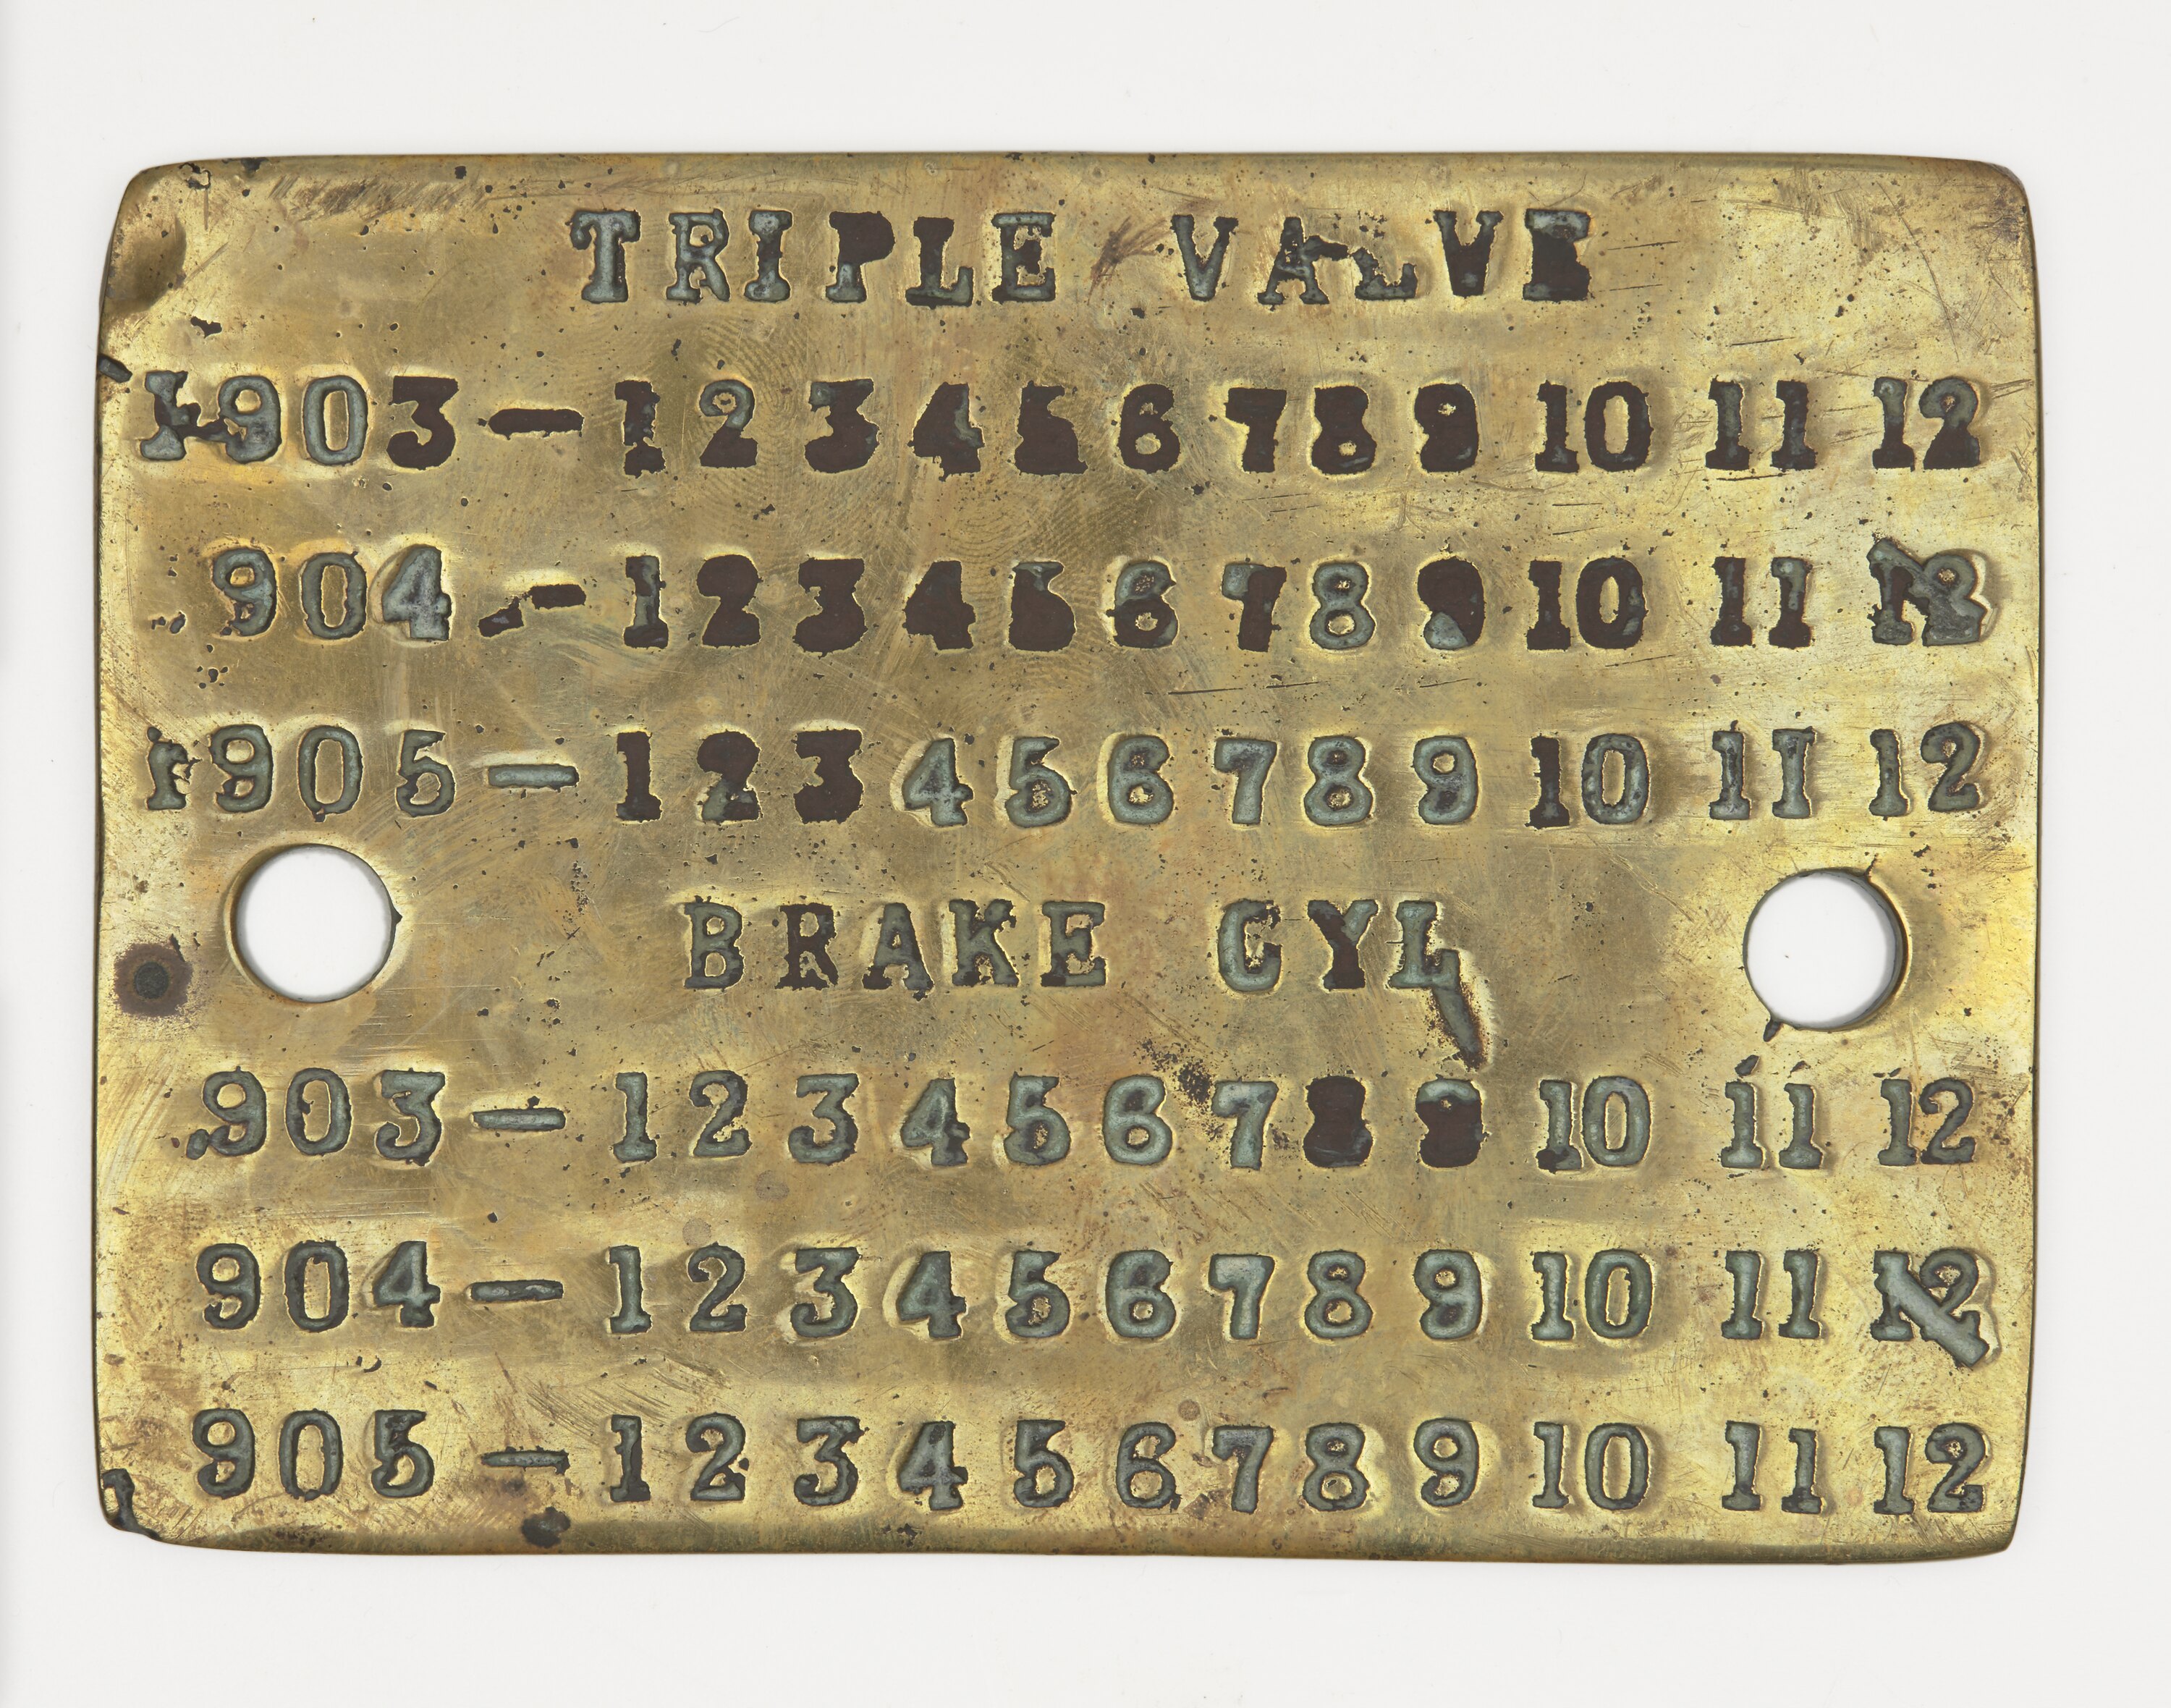 TRIPLE VALVE
1903 - 1 2 3 4 5 6 7 8 9 10 11 12
904 - 1 2 3 4 5 6 7 8 9 10 11 12
1905 - 1 2 3 4 5 6 7 8 9 10 11 12
BRAKE CYL
903 - 1 2 3 4 5 6 7 8 9 10 11 12
904 - 1 2 3 4 5 6 7 8 9 10 11 12
905 - 1 2 3 4 5 6 7 8 9 10 11 12